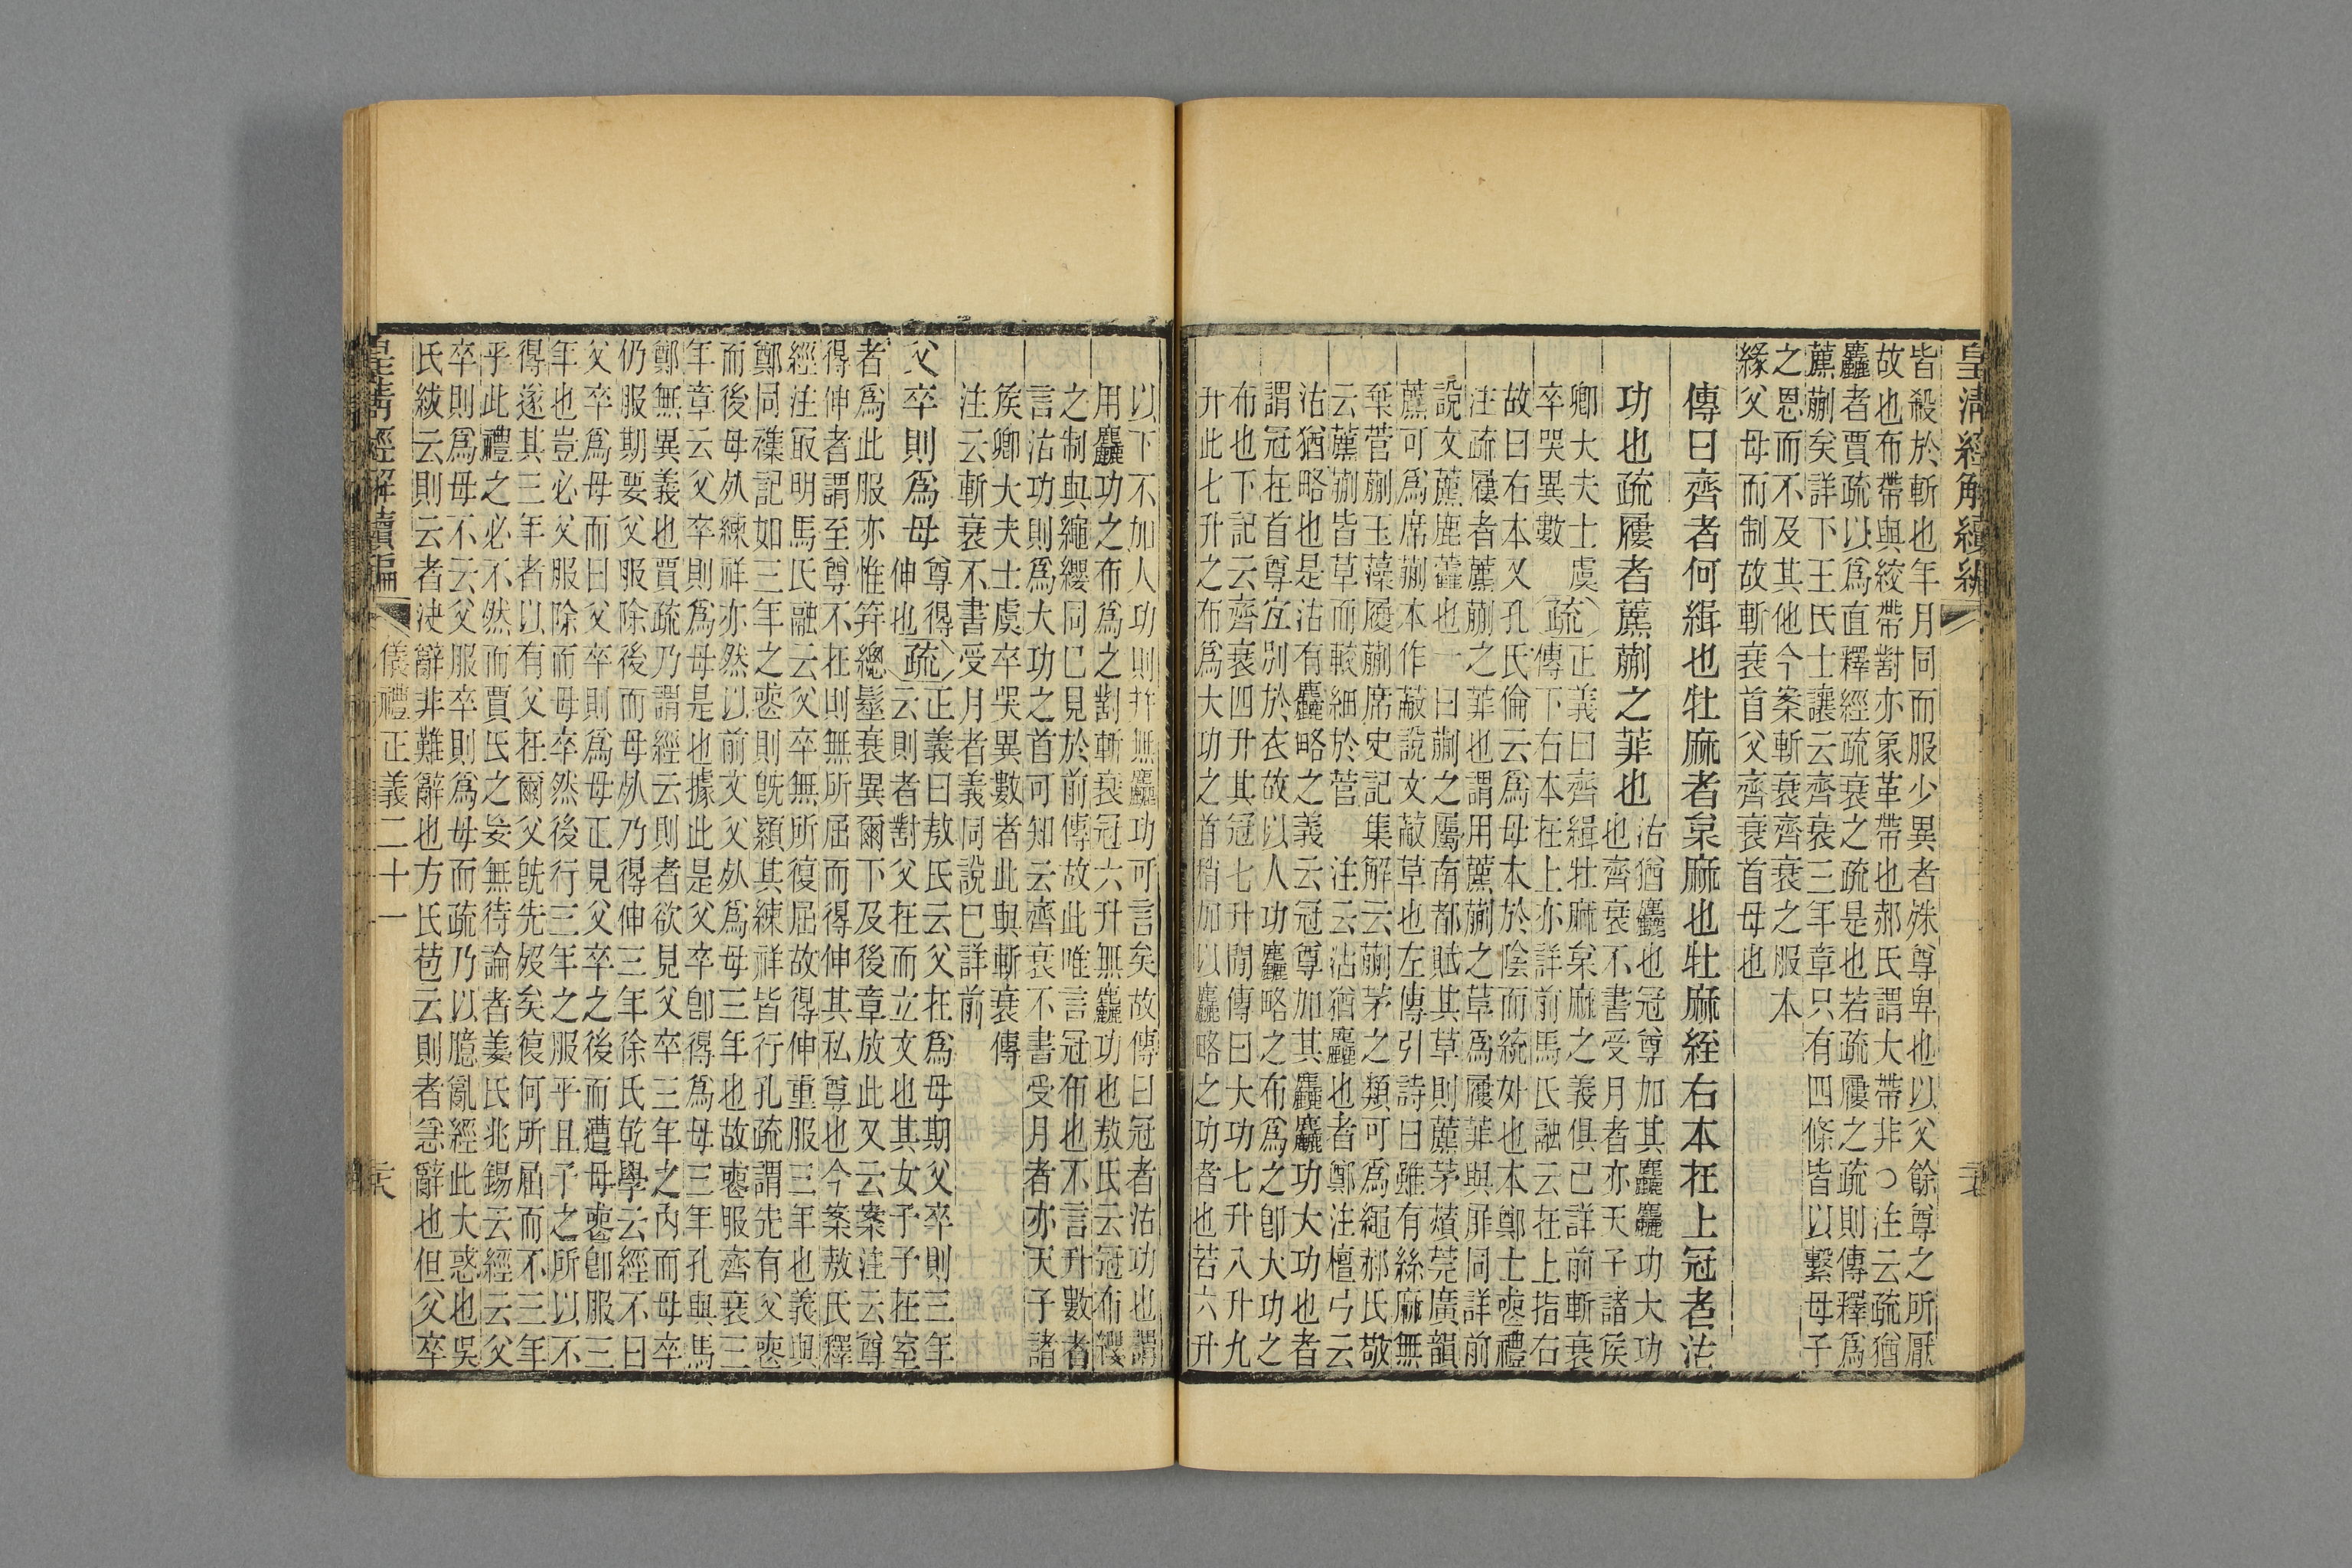 皇清經解續編
皆殺於斬也年月同而服少異者殊尊卑也以父餘尊之所厭
故也布帶與絞帶對亦象革帶也郝氏謂大帶非○注云疏猶
麤者賈疏以爲直釋經疏衰之疏是也若疏屨之疏則傳釋爲
藨蒯矣詳下王氏士讓云齊衰三年章只有四條皆以繫母子
之恩而不及其他今案斬衰齊衰之服本
緣父母而制故斬衰首父齊衰首母也
傳曰齊者何緝也牡麻者枲麻也牡麻絰右本在上冠者沽
功也疏屨者藨蒯之菲也
沽猶麤也冠尊加其麤麤功大功
也齊衰不書受月者亦天子諸侯
卿大夫士虞
卒哭異數
疏
正義曰齊緝牡麻枲麻之義俱已詳前斬衰
傳下右本在上亦詳前馬氏融云在上指右
故曰右本又孔氏倫云爲母本於陰而統於外也本鄭士喪禮
注疏屨者藨蒯之菲也謂用藨蒯之草爲屨菲與屝同詳前
說文藨鹿藿也一曰蒯之屬南都賦其草則藨茅薠莞廣韻
藨可爲席蒯本作蔽說文蔽草也左傳引詩曰雖有絲麻無
棄菅蒯玉藻履蒯席史記集解云蒯茅之類可爲繩郝氏敬
云藨蒯皆草而較細於菅 注云沽猶麤也者鄭注檀弓云
沽猶略也是沽有麤略之義云冠尊加其麤麤功大功也者
謂冠在首尊宜別於衣故以人功麤略之布爲之卽大功之
布也下記云齊衰四升其冠七升閒傳曰大功七升八升九
升此七升之布爲大功之首稍加以麤略之功者也若六升
以下不加人功則幷無麤功可言矣故傳曰冠者沽功也謂
用麤功之布爲之對斬衰冠六升無麤功也敖氏云冠布纓
之制與繩纓同已見於前傳故此唯言冠布也不言升數者
言沽功則爲大功之首可知云齊衰不書受月者亦天子諸
侯卿大夫士虞卒哭異數者此與斬衰傳
注云斬衰不書受月者義同說已詳前
父卒則爲母
尊得
伸也
疏
正義曰敖氏云父在爲母期父卒則三年
云則者對父在而立文也其女子子在室
者爲此服亦惟笄總髽衰異爾下及後章放此又云案注云尊
得伸者謂至尊不在則無所屈而得伸其私尊也今案敖氏釋
經注㝡明馬氏融云父卒無所復屈故得伸重服三年也義與
鄭同襍記如三年之喪則旣顈其練祥皆行孔疏謂先有父喪
而後母死練祥亦然以前文父死爲母三年也故喪服齊衰三
年章云父卒則爲母是也據此是父卒卽得爲母三年孔與馬
鄭無異義也賈疏乃謂經云則者欲見父卒三年之內而母卒
仍服期要父服除後而母死乃得伸三年徐氏乾學云經不曰
父卒爲母而曰父卒則爲母正見父卒之後而遭母喪卽服三
年也豈必父服除而母卒然後行三年之服乎且子之所以不
得遂其三年者以有父在爾父旣先歿矣復何所屈而不三年
乎此禮之必不然而賈氏之妄無待論者姜氏兆錫云經云父
卒則爲母不云父服卒則爲母而疏乃以臆亂經此大惑也吳
氏紱云則云者決辭非難辭也方氏苞云則者急辭也但父卒
皇清經解續編 儀禮正義二十一 六